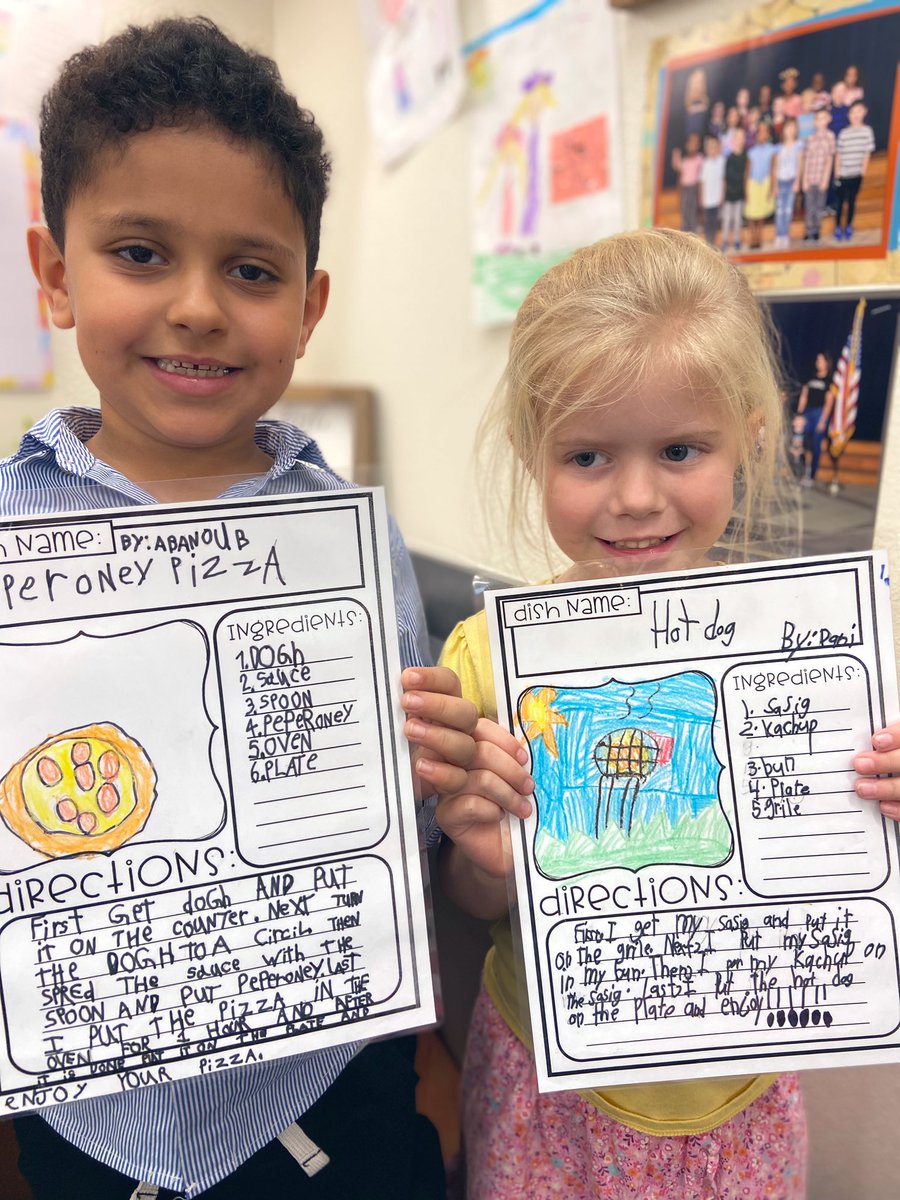 h Name:
BY: ABANOUB
PePeroNEY PiZZA
INgredieNts:
1. DOGh
2. Sauce
3. SPOON
4. PePeRONEY
5. OVEN
6. PLATE
directions:
First Get dogh AND PUT
it ON THE COUNTER. Next TURN
THE DOGH TO A Circil THEN
SPRED THE Sauce WITH THE
SPOON AND PUT PePeRONEY. LAST
I PUT THE PizzA IN THE
OVEN FOR 1 HOUR AND AFTER
IT is DONE PUT iT ON THE PLATE AND
ENJOY YOUR PizzA.
dish Name:
Hot dog
By:
INgredieNts:
1. Sasig
2. Kachup
3. bun
4. Plate
5. grile
directions:
First I get my sasig and put it
on the grile. Next I Put my Sasig
in my bun. Then I my Kachup on
the Sasig. Last I Put the hot dog
on the Plate and enjoy!!!!!!